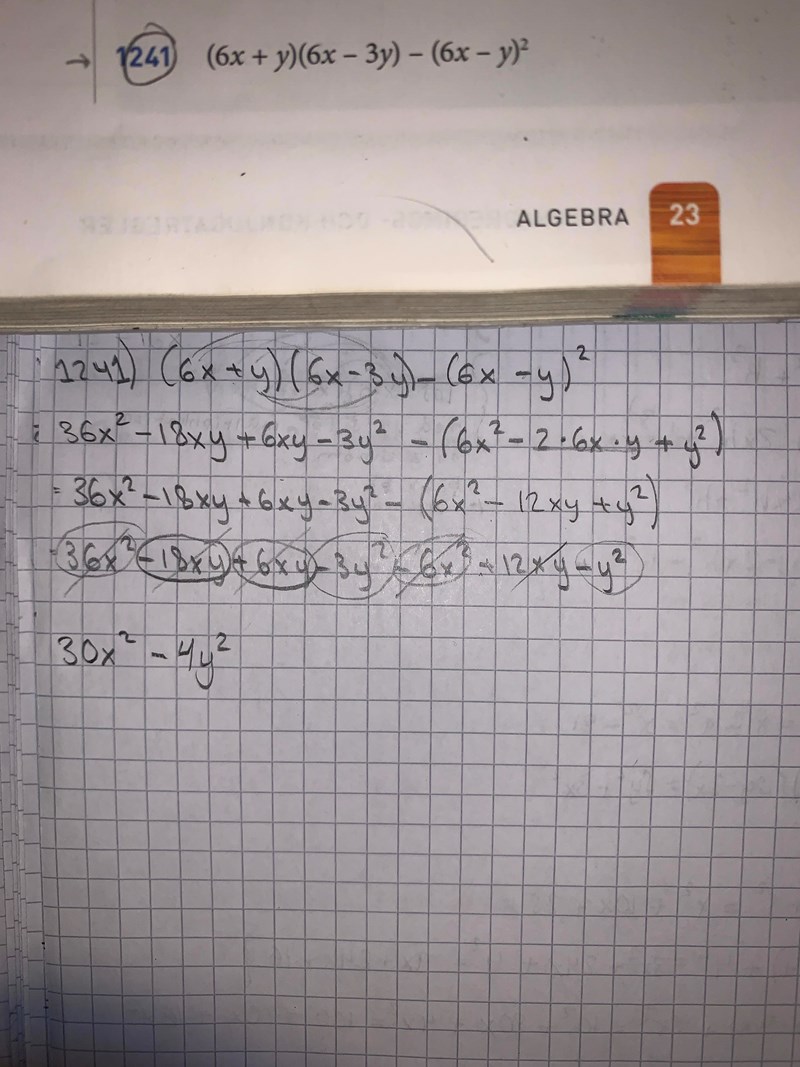 → 1241 (6x + y)(6x – 3y) – (6x – y)²
ALGEBRA 23
1241) (6x+y)(6x-3y)-(6x-y)²
= 36x²-18xy+6xy-3y² - (6x²-2·6x·y+y²)
= 36x²-18xy+6xy-3y²-(6x²-12xy+y²)
-36x²-18xy+6xy-3y²-6x²+12xy-y²
30x²-4y²